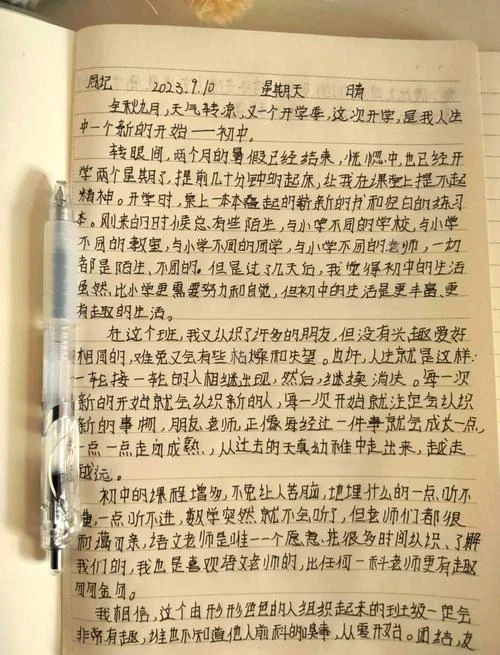 周记 2023.9.10 星期天 晴
年秋九月，天气转凉，又一个开学季，这次开学，是我人生
中一个新的开始——初中。
转眼间，两个月的暑假已经结束，恍惚中，也已经开
学两个星期了，提前几十分钟的起床，让我在课堂上提不起
精神。开学时，桌上一本本叠起的崭新的书和空白的练习
本。刚来的时候总有些陌生，与小学不同的学校，与小学
不同的教室，与小学不同的同学，与小学不同的老师，一切
都是陌生、不同的。但是过了几天后，我觉得初中的生活
虽然比小学更需要努力和自觉，但初中的生活是更丰富、更
有趣的生活。
在这个班，我又认识了许多的朋友，但没有兴趣爱好
相同的，难免又会有些枯燥和失望。也许，人生就是这样：
一轮接一轮的人相继出现，然后，继续消失。每一次
新的开始就会认识新的人，每一次开始就注定会认识
新的事物，朋友、老师，正像每经过一件事就会成长一点，
一点一点走向成熟，从过去的天真幼稚中走出来，越走
越远。
初中的课程增多，不免让人苦脑，地理什么的一点听不
懂，一点听不进，数学突然就不会听了，但老师们都很
和蔼可亲，语文老师是唯一一个愿意花很多时间认识、了解
我们的，我也是喜欢语文老师的，比任何一科老师更有趣
我相信，这个由形形色色的人组织起来的班级一定会
非常有趣，谁也不知道他人前科的糗事，从零开始。团结，友